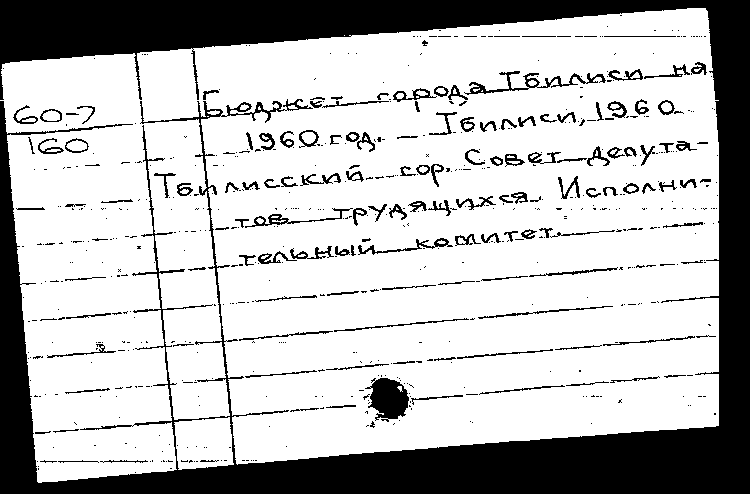 60-7
160
Бюджет города Тбилиси на
1960 год. — Тбилиси, 1960
Тбилисский гор. Совет депута-
тов трудящихся. Исполни-
тельный комитет.